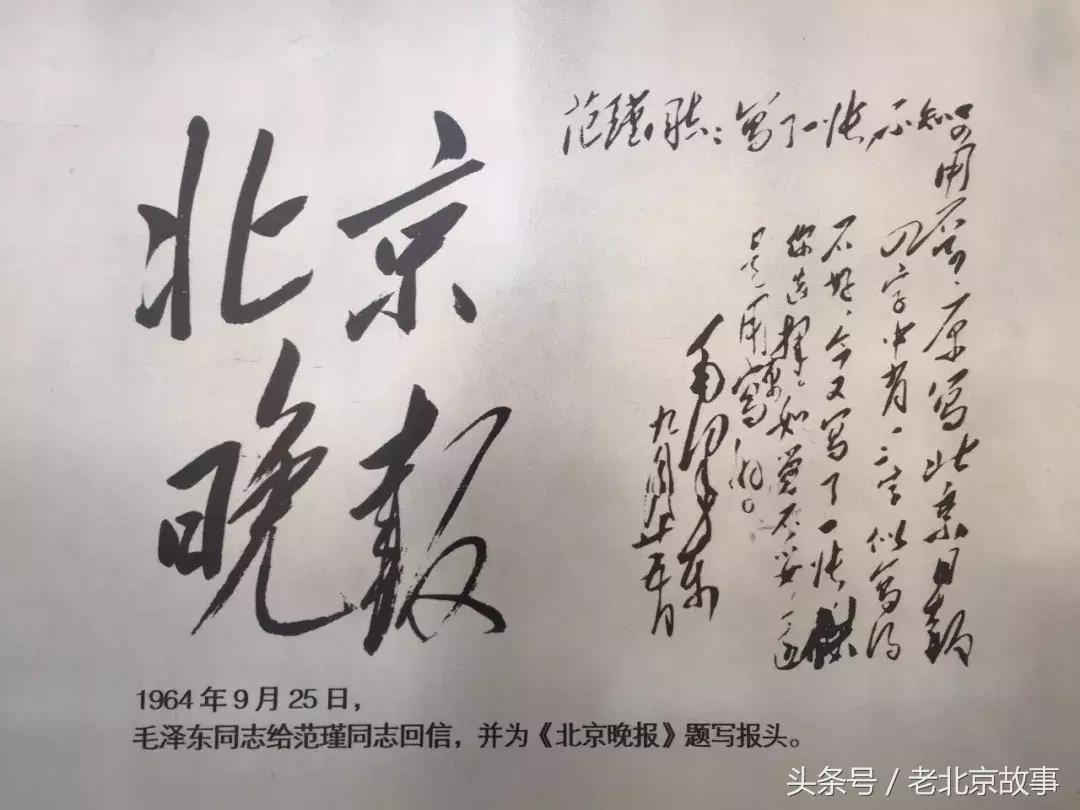 北京
晚报
范瑾同志：写了一张，不知
可用否？原写北京日报
四字中有一二字似写得
不好，今又写了一张，供
你选择。如觉不妥，还
是用原写的。
毛泽东
九月廿五日
1964年9月25日，
毛泽东同志给范瑾同志回信，并为《北京晚报》题写报头。
头条号 / 老北京故事